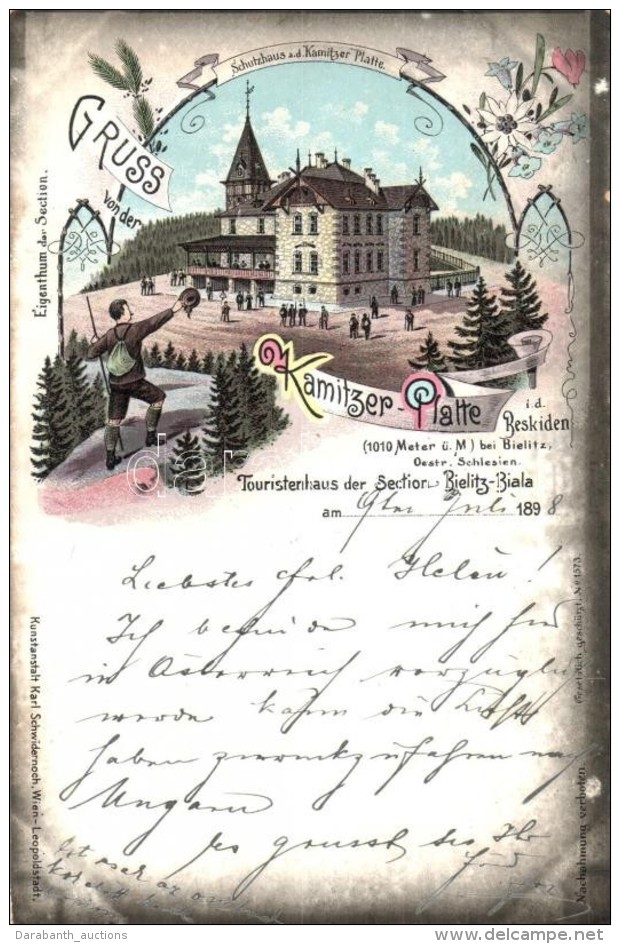 Schutzhaus a.d. Kamitzer Platte.
GRUSS
von der
Eigenthum der Section.
Kamitzer-Platte
i.d.
Beskiden
(1010 Meter ü. M) bei Bielitz,
Oestr. Schlesien.
Touristenhaus der Section Bielitz-Biala
am 9ten Juli 1898
Liebstes Frl. Helen!
Ich befinde mich hier
in Österreich vorzüglich
werde kaum die Lust
haben zurückzufahren nach
Ungarn
Es grüsst Sie Ihr
Kunstanstalt Karl Schwidernoch, Wien-Leopoldstadt.
Gesetzlich geschützt. No 1573.
Nachahmung verboten.
Darabanth_auctions
delcampe.net